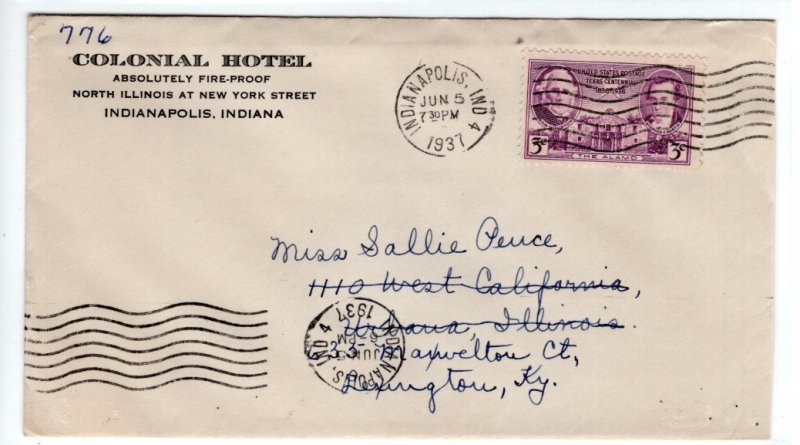 776
COLONIAL HOTEL
ABSOLUTELY FIRE-PROOF
NORTH ILLINOIS AT NEW YORK STREET
INDIANAPOLIS, INDIANA
INDIANAPOLIS, IND 4
JUN 5
7 30 PM
1937
UNITED STATES POSTAGE
TEXAS CENTENNIAL
1836-1936
3¢ THE ALAMO 3¢
Miss Sallie Pence,
1110 West California,
Urbana, Illinois.
Maxwelton Ct,
Lexington, Ky.
INDIANAPOLIS, IND 4
JUN 5
PM
1937